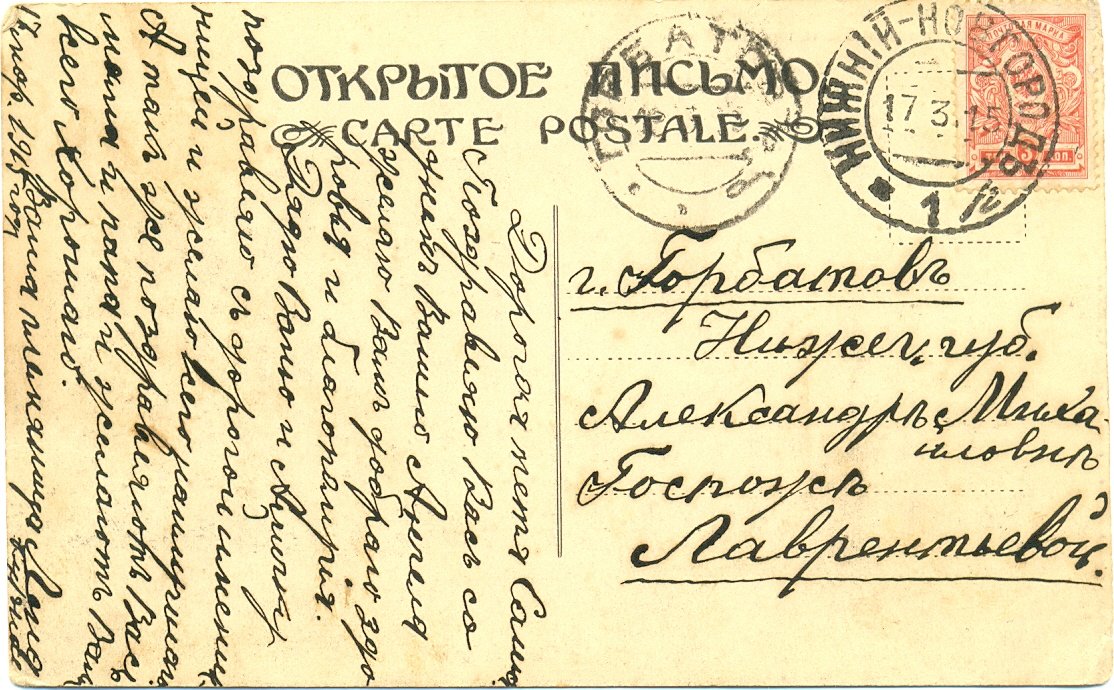 ОТКРЫТОЕ ПИСЬМО
CARTE POSTALE.
НИЖНІЙ-НОВГОРОДЪ
17.3.15
1
ПОЧТОВАЯ МАРКА
3 КОП.
г. Горбатовъ
Нижег. губ.
Александрѣ Миха-
иловнѣ
Госпожѣ
Лаврентьевой.
Дорогая тетя Саша
Поздравляю Васъ со
днемъ Вашего Ангела
желаю Вамъ добраго здо
ровья и благополучія.
Дядю Ваню и
поздравляю съ дорогой имени
ницей и желаю всего
А такъ же поздравляютъ Васъ
мама и папа и желаютъ Вамъ
всего хорошаго.
Ваша племянница
17 мар. 1915 год